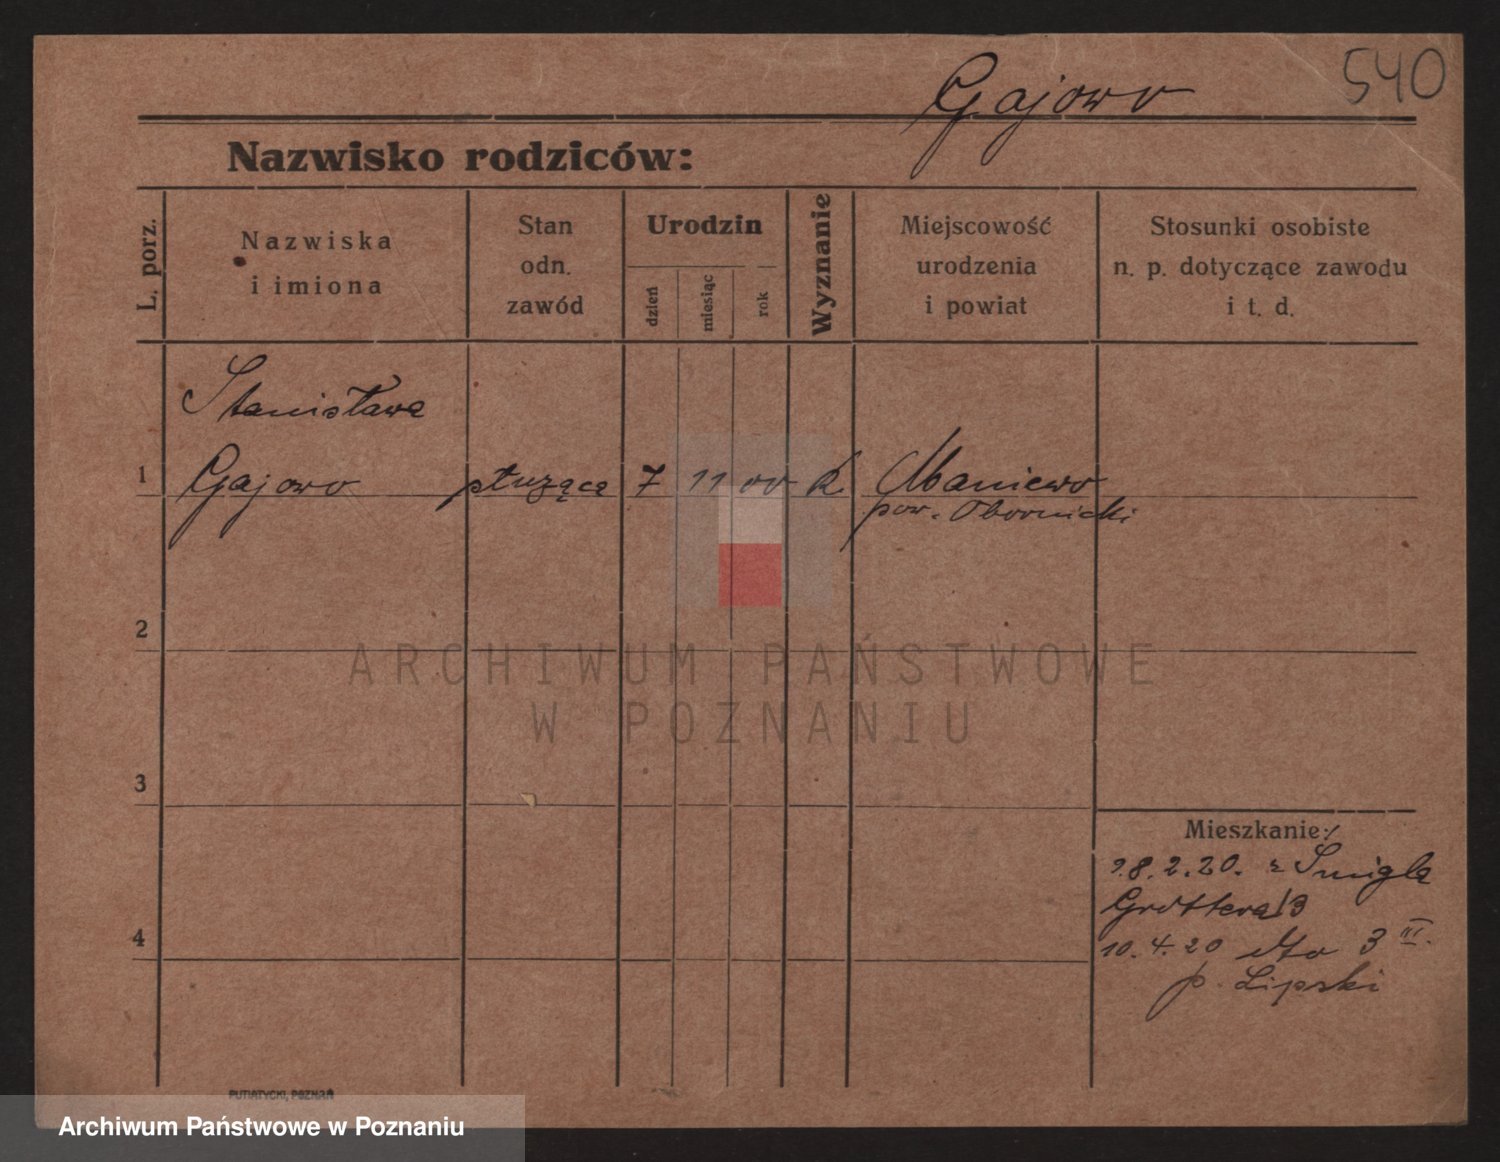 Gajowo 540
Nazwisko rodziców:
L. porz.
Nazwiska
i imiona
Stan
odn.
zawód
Urodzin
dzień
miesiąc
rok
Wyznanie
Miejscowość
urodzenia
i powiat
Stosunki osobiste
n. p. dotyczące zawodu
i t. d.
Stanisława
1 Gajowo służąca 7 11 00 k Maniewo
pow. Obornicki
2
3
4
Mieszkanie:
8.2.20. z Śmigla
Grottera 3
10.4.20 dto 3 III.
p. Lipski
PUTIATYCKI, POZNAŃ
ARCHIWUM PAŃSTWOWE
W POZNANIU
Archiwum Państwowe w Poznaniu